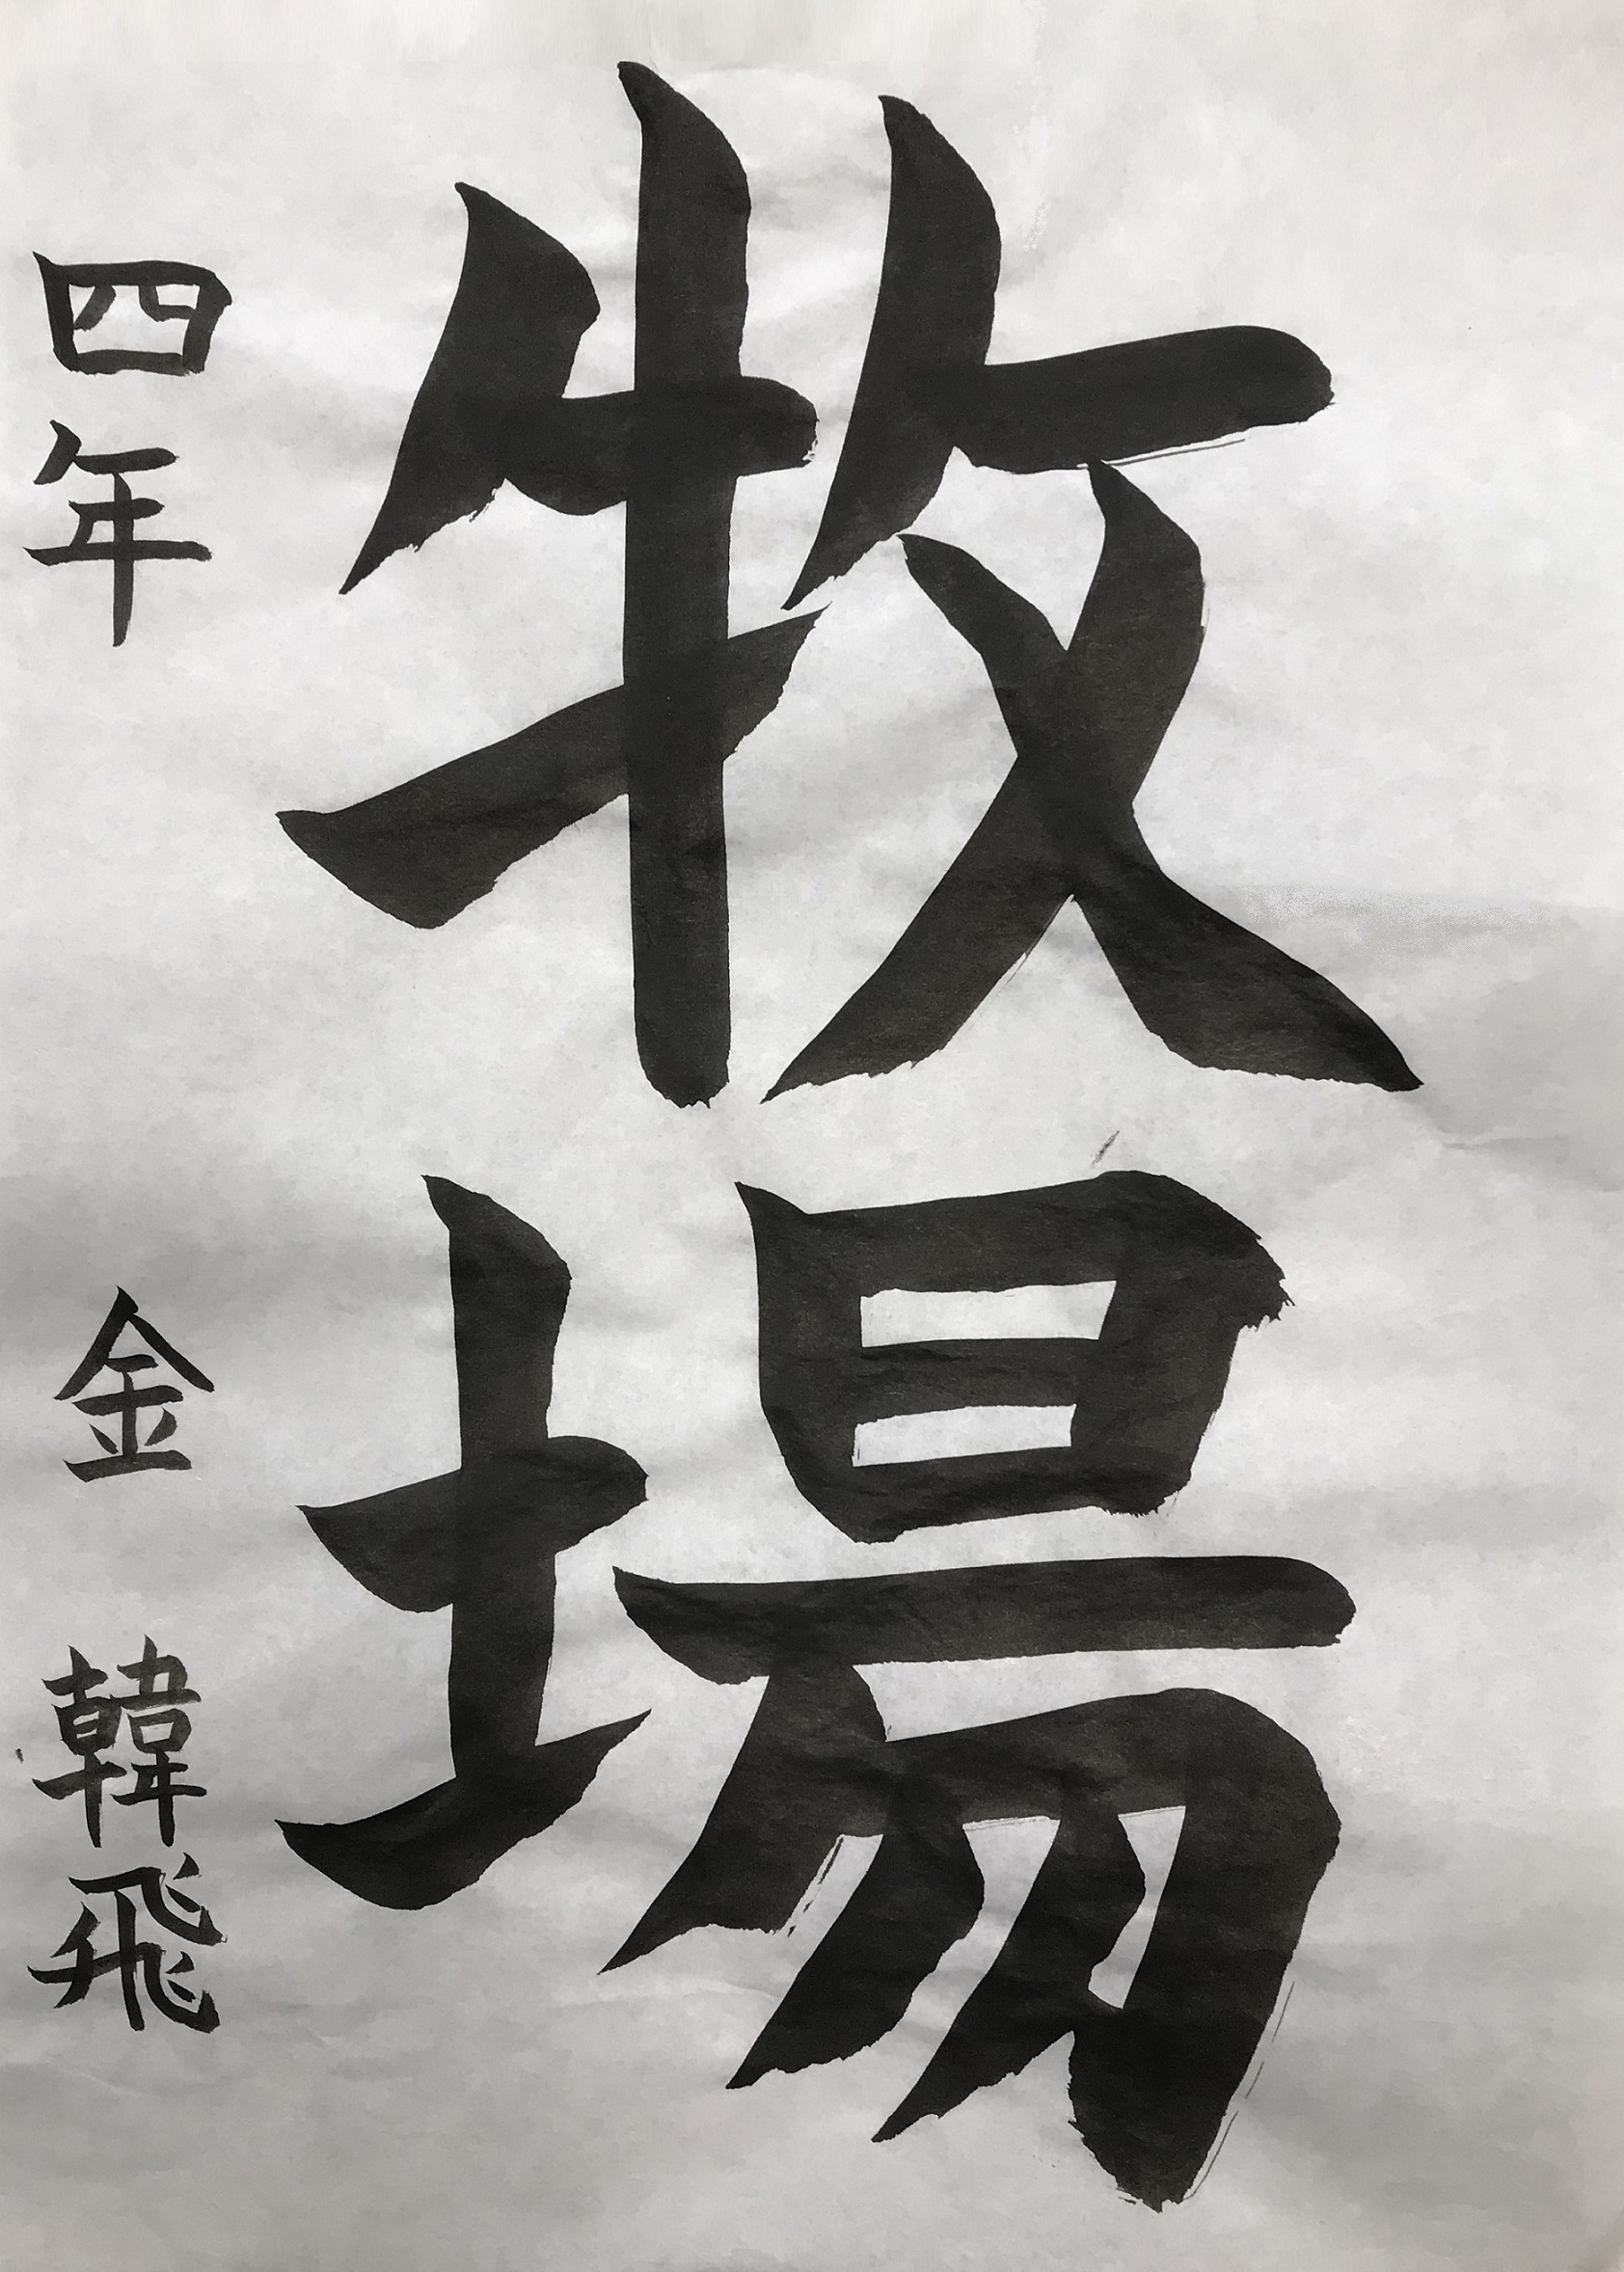 牧場
四年 金 韓飛